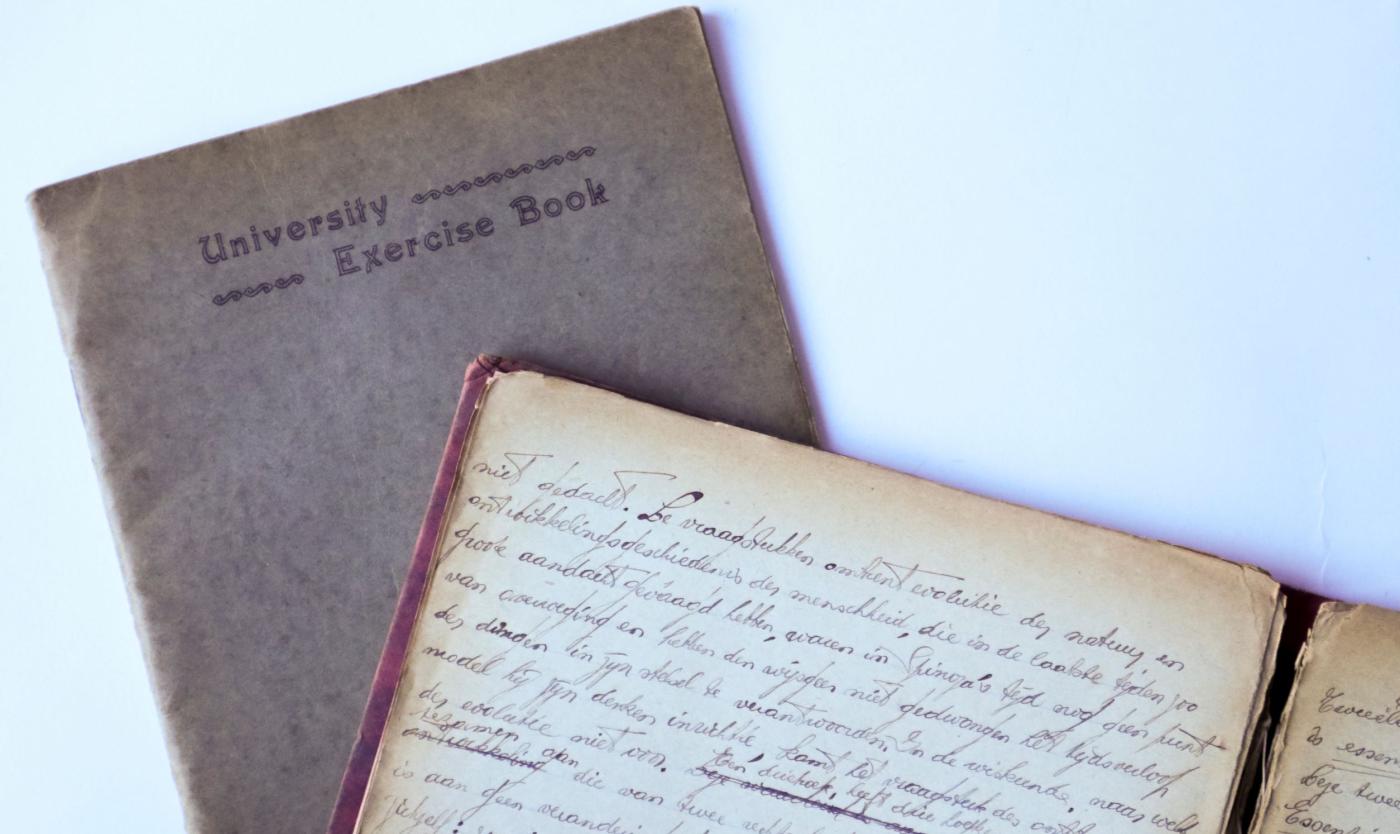 University
Exercise Book
niet gedacht. De vraagstukken omtrent evolutie der natuur en
ontwikkelingsgeschiedenis der menschheid, die in de laatste tijden zoo
groote aandacht gevraagd hebben, waren in Spinoza's tijd nog geen punt
van overweging en hebben den wijsgeer niet gedwongen het tijdsverloop
der dingen in zijn stelsel te verantwoorden. In de wiskunde, naar welk
model hij zijn denken inrichtte, komt het vraagstuk des
der evolutie niet voor. Een driehoek, heeft drie hoeken
tezamen aan
ontwikkeling die van twee
is aan geen
zichzelf
is essen
Deze twee